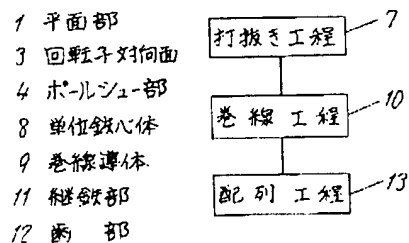 1 平面部
3 回転子対向面
4 ポールシュー部
8 単位鉄心体
9 巻線導体
11 継鉄部
12 歯部
打抜き工程 7
巻線工程 10
配列工程 13